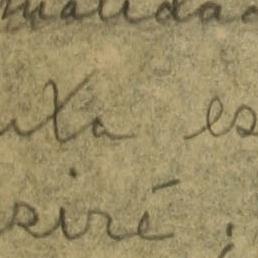 malidad
uxa es
siré ;